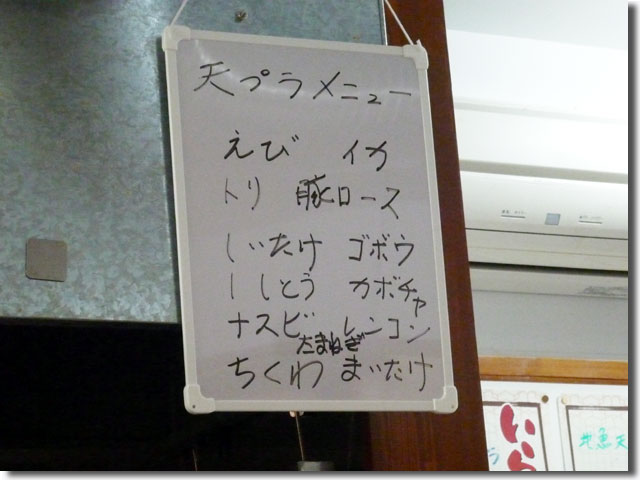 天プラメニュー
えび イカ
トリ 豚ロース
しいたけ ゴボウ
ししとう カボチャ
ナスビ レンコン
たまねぎ
ちくわ まいたけ
地魚天